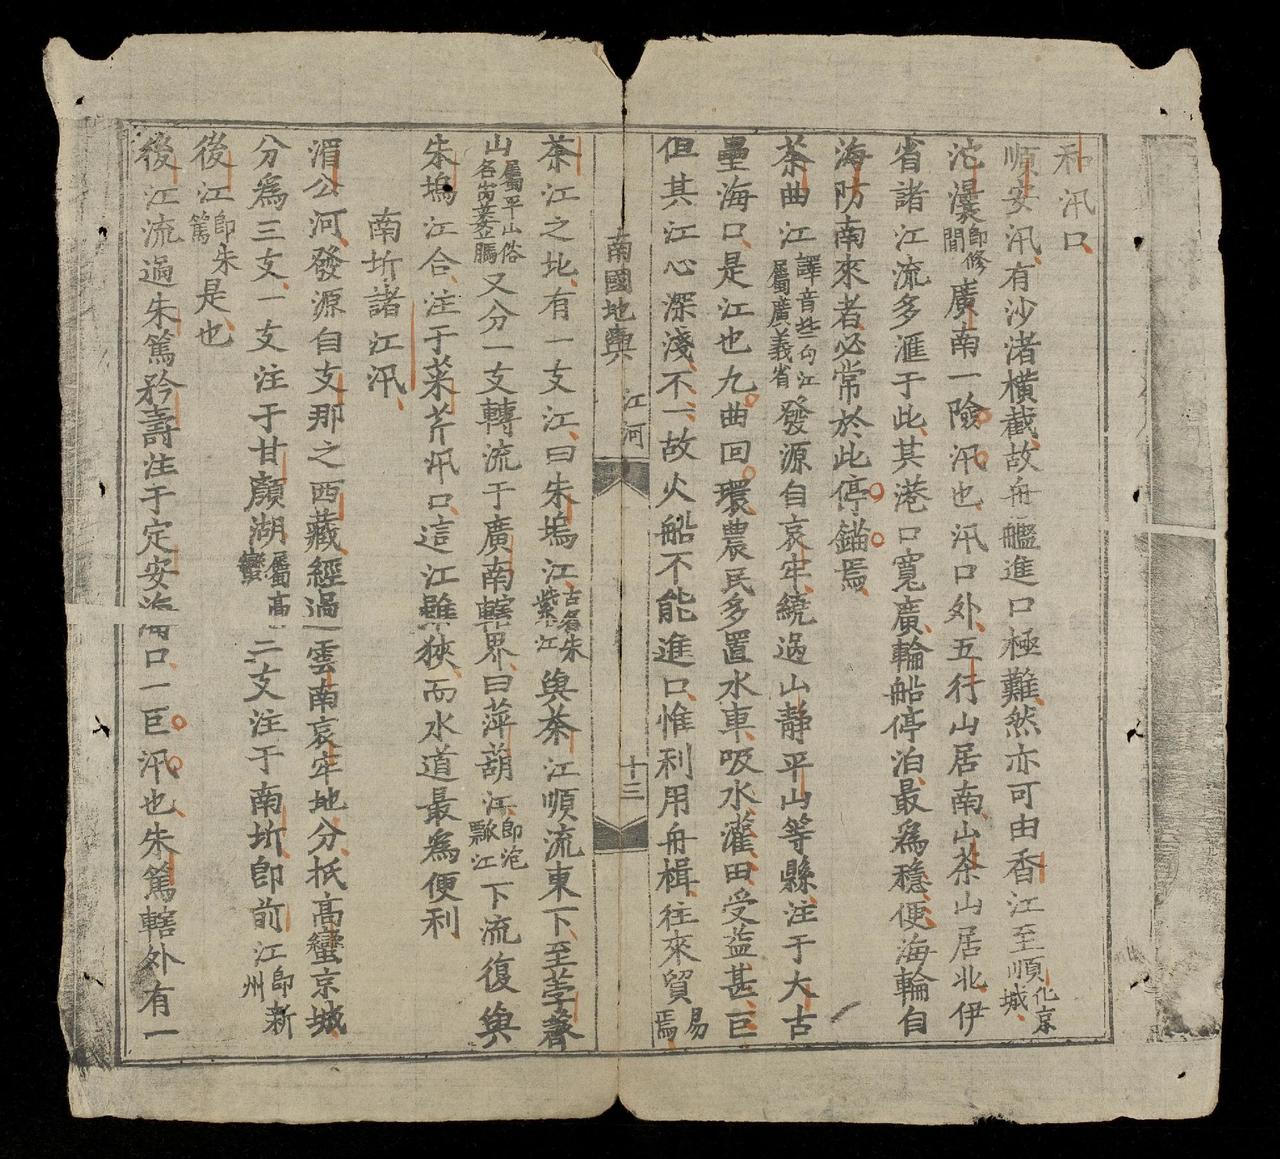 和汛口、
順安汛、有沙渚橫截、故舟艦進口極難、然亦可由香江至順化京城、
沱㶞即修間廣南一險汛也、汛口外、五行山居南、山茶山居北、伊
省諸江流多滙于此、其港口寬廣、輪船停泊、最爲穩便、海輪自
海防南來者、必常於此停錨焉、
茶曲江譯音些句江屬廣義省發源自哀牢、繞過山静平山等縣、注于大古
壘海口、是江也九曲回環、農民多置水車、吸水灌田、受益甚、巨
但其江心深淺、不一、故火船不能進口、惟利用舟楫、往來貿易焉、
南國地輿 江河 十三
茶江之北、有一支江、曰朱塢江古名朱紫江與茶江順流東下、至葶藶
山屬平山俗各嵜薹䴎又分一支轉流于廣南轄界、曰萍葫江、即沱瓢江下流復與
朱塢江合、注于菜芹汛口、這江雖狹、而水道最爲便利、
南圻諸江汛、
湄公河、發源自支那之西藏、經過雲南哀牢地分、抵高蠻京城、
分爲三支、一支注于甘顏湖屬高蠻二支注于南圻、即前江即新州
後江即朱篤是也、
後江流過朱篤矜壽注于定安海口、一巨汛也、朱篤轄外有一